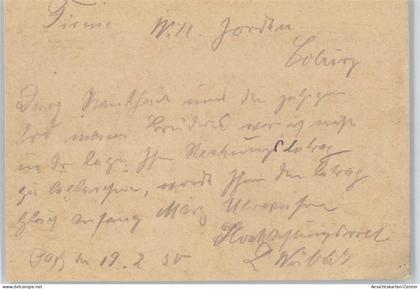 Firma W. H. Jordan
Coburg
Durch Krankheit und den jähigen
Tod meines Bruders war ich nicht
in der Lage Ihre Rechnungsbetrag
zu begleichen, werde Ihnen den Betrag
gleich anfang März überweisen
Hochachtungsvoll
den 19. 2 30
© Ansichtskarten-Center